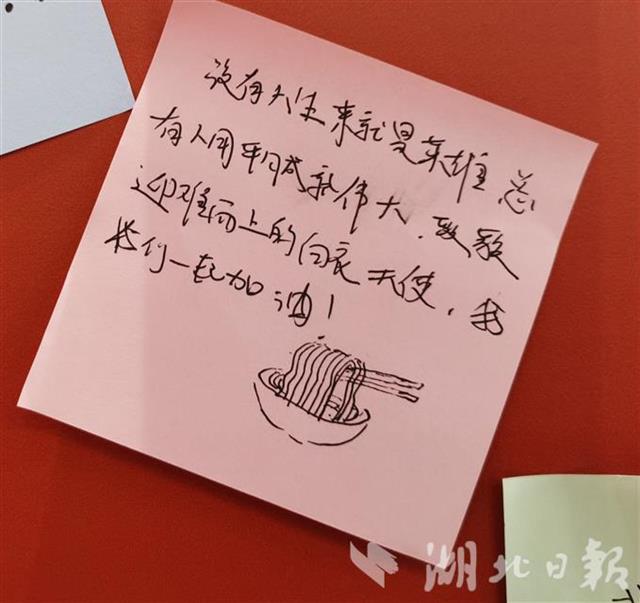 没有人生来就是英雄 总
有人用平凡成就伟大,致敬
迎难而上的白衣天使,我
我们一起加油!
湖北日報